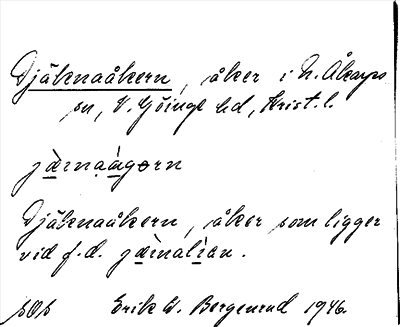 Djäknaåkern, åker i N. Åkarps
sn, V. Göinge hd, Krist. l.
jä̀rnaå̀gorn
Djäknaåkern, åker som ligger
vid f.d. jä̀rnalìan.
Erik W. Bergenrud 1946